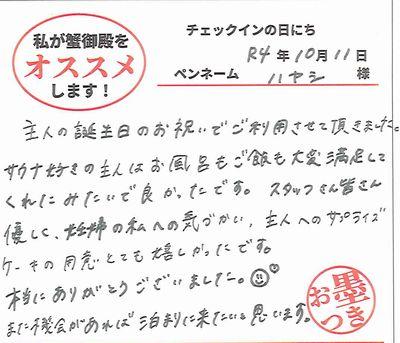 私が蟹御殿を
オススメ
します！
チェックインの日にち
R4年10月11日
ペンネーム ハヤシ 様
主人の誕生日のお祝いでご利用させて頂きました。
サウナ好きの主人はお風呂もご飯も大変満足して
くれたみたいで良かったです。 スタッフさん皆さん
優しく、妊婦の私への気づかい、主人へのサプライズ
ケーキの用意とても嬉しかったです。
本当にありがとうございました。
また機会があれば泊まりに来たいと思います。
お墨つき